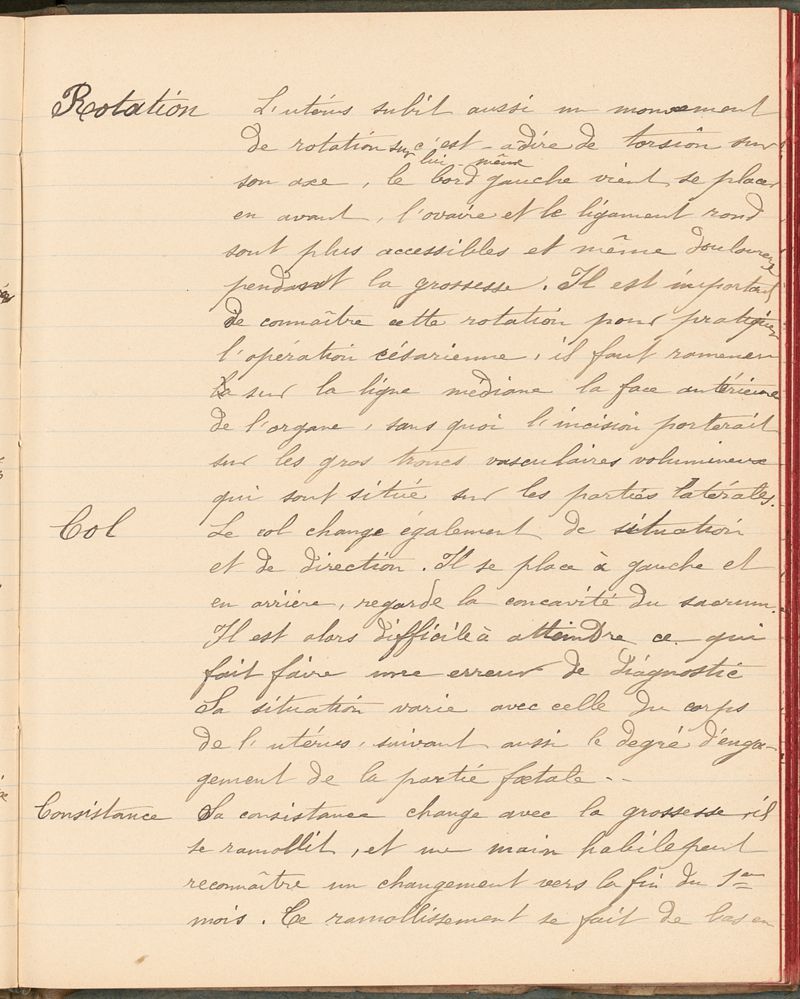 Rotation L'utérus subit aussi un mouvement
de rotation sur c'est-adire de torsion sur
lui-même
son axe, le bord gauche vient se placer
en avant, l'ovaire et le ligament rond
sont plus accessibles et même douloureux
pendant la grossesse. Il est important
de connaître cette rotation pour pratiquer
l'opération césarienne, il faut ramener
sur la ligne médiane la face antérieure
de l'organe, sans quoi l'incision porterait
sur les gros troncs vasculaires volumineux
qui sont situé sur les parties latérales.
Col Le col change également de situation
et de direction. Il se place à gauche et
en arrière, regarde la concavité du sacrum.
Il est alors difficile à atteindre ce qui
fait faire une erreur de diagnostic
Sa situation varie avec celle du corps
de l'utérus, suivant aussi le degré d'enga-
gement de la partie fœtale --
Consistance Sa consistance change avec la grossesse, il
se ramollit, et une main habile peut
reconnaître un changement vers la fin du 1er
mois. Ce ramollissement se fait de bas en